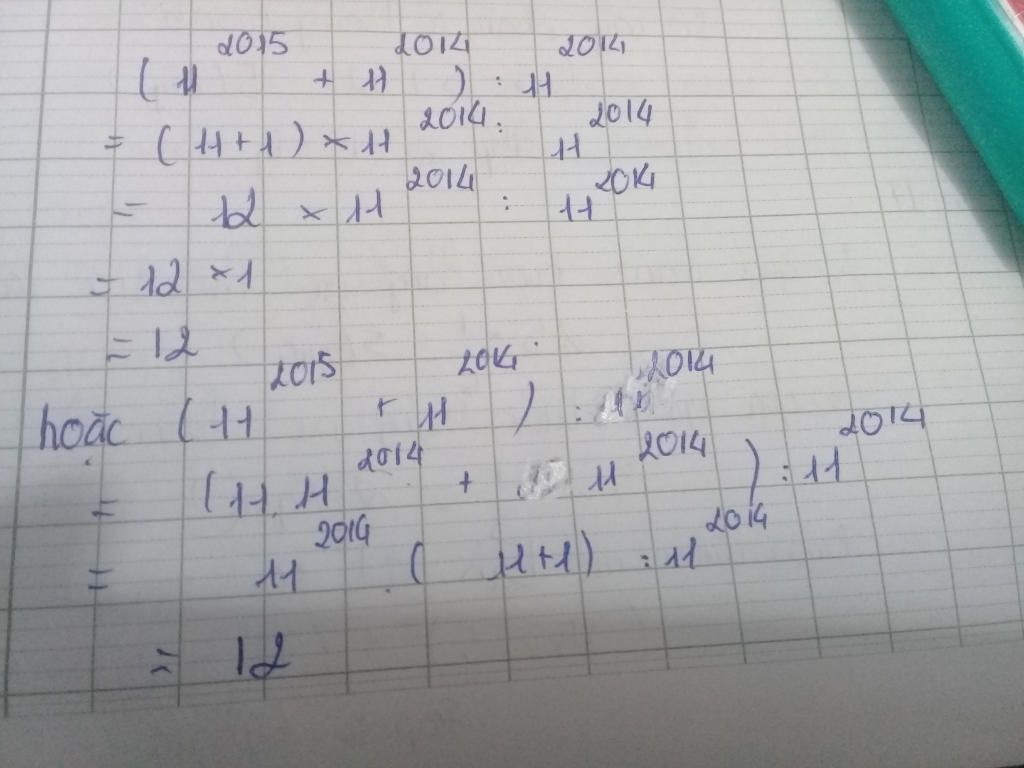 (11^2015 + 11^2014) : 11^2014
= (11+1) × 11^2014 : 11^2014
= 12 × 11^2014 : 11^2014
= 12 × 1
= 12
hoặc (11^2015 + 11^2014) : 11^2014
= (11.11^2014 + 11^2014) : 11^2014
= 11^2014 . (11+1) : 11^2014
= 12